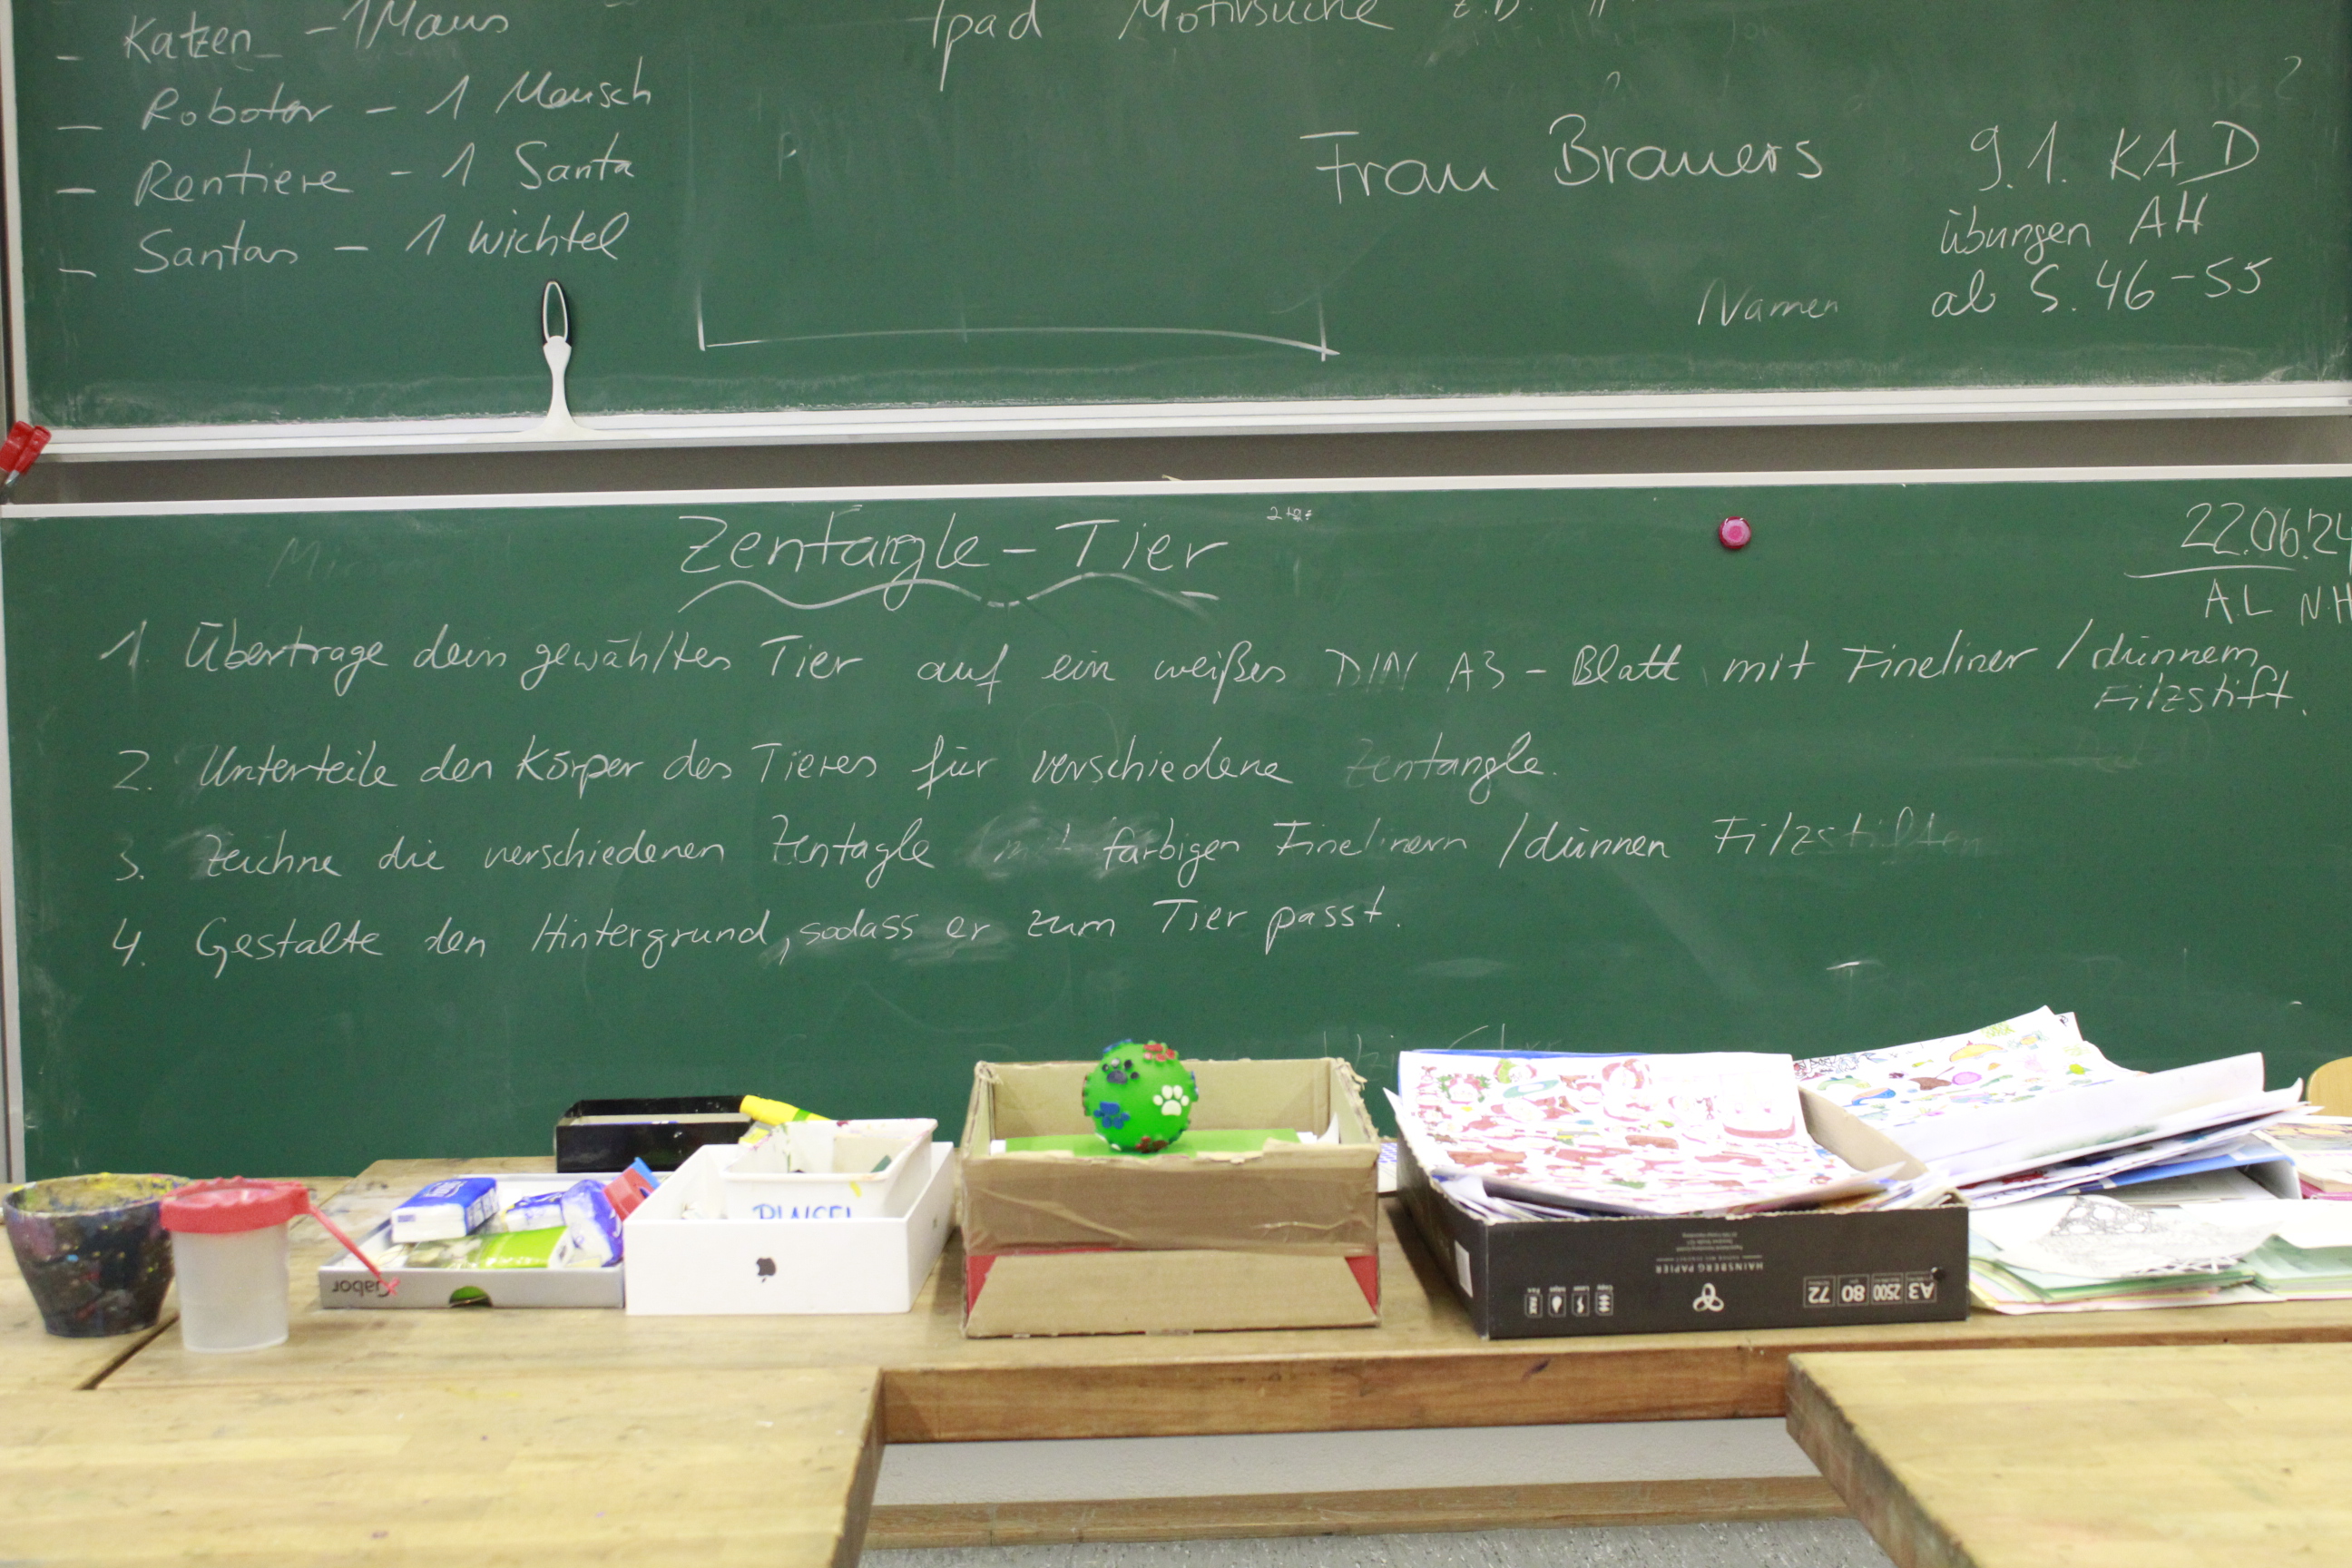 - Katzen - 1 Maus
- Roboter - 1 Mensch
- Rentiere - 1 Santa
- Santas - 1 Wichtel
Ipad Motivsuche z.B.
Frau Brauers
Namen
9.1. KA D
Übungen AH
ab S. 46-55
Zentangle-Tier
22.06.24
AL NH
1. Übertrage dein gewähltes Tier auf ein weißes DIN A3-Blatt mit Fineliner / dünnem
Filzstift.
2. Unterteile den Körper des Tieres für verschiedene Zentangle.
3. Zeichne die verschiedenen Zentagle mit farbigen Finelinern / dünnen Filzstiften
4. Gestalte den Hintergrund, sodass er zum Tier passt.
PINSEL
Gabor
HAINSBERG PAPIER
A3 2500 80 72